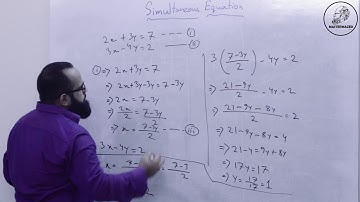 Simultaneous Equation
2x+3y=7 ---- (i)
3x-4y=2 ---- (ii)
(i)⇒ 2x+3y=7
⇒ 2x+3y-3y=7-3y
⇒ 2x=7-3y
⇒ 2x/2 = 7-3y/2
⇒ x = 7-3y/2 ---- (iii)
3x-4y=2
x=
7-3/2
3(7-3y/2)-4y=2
⇒ 21-9y/2 -4y=2
⇒ 21-9y-8y/2 =2
⇒ 21-9y-8y=4
⇒ 21-4=9y+8y
⇒ 17y=17
⇒ y=17/17=1